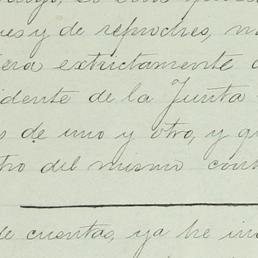 ues y de reproches, 
era extrictamente
idente de la Junta
s de uno y otro, y
tro del mismo
de cuentas, ya he